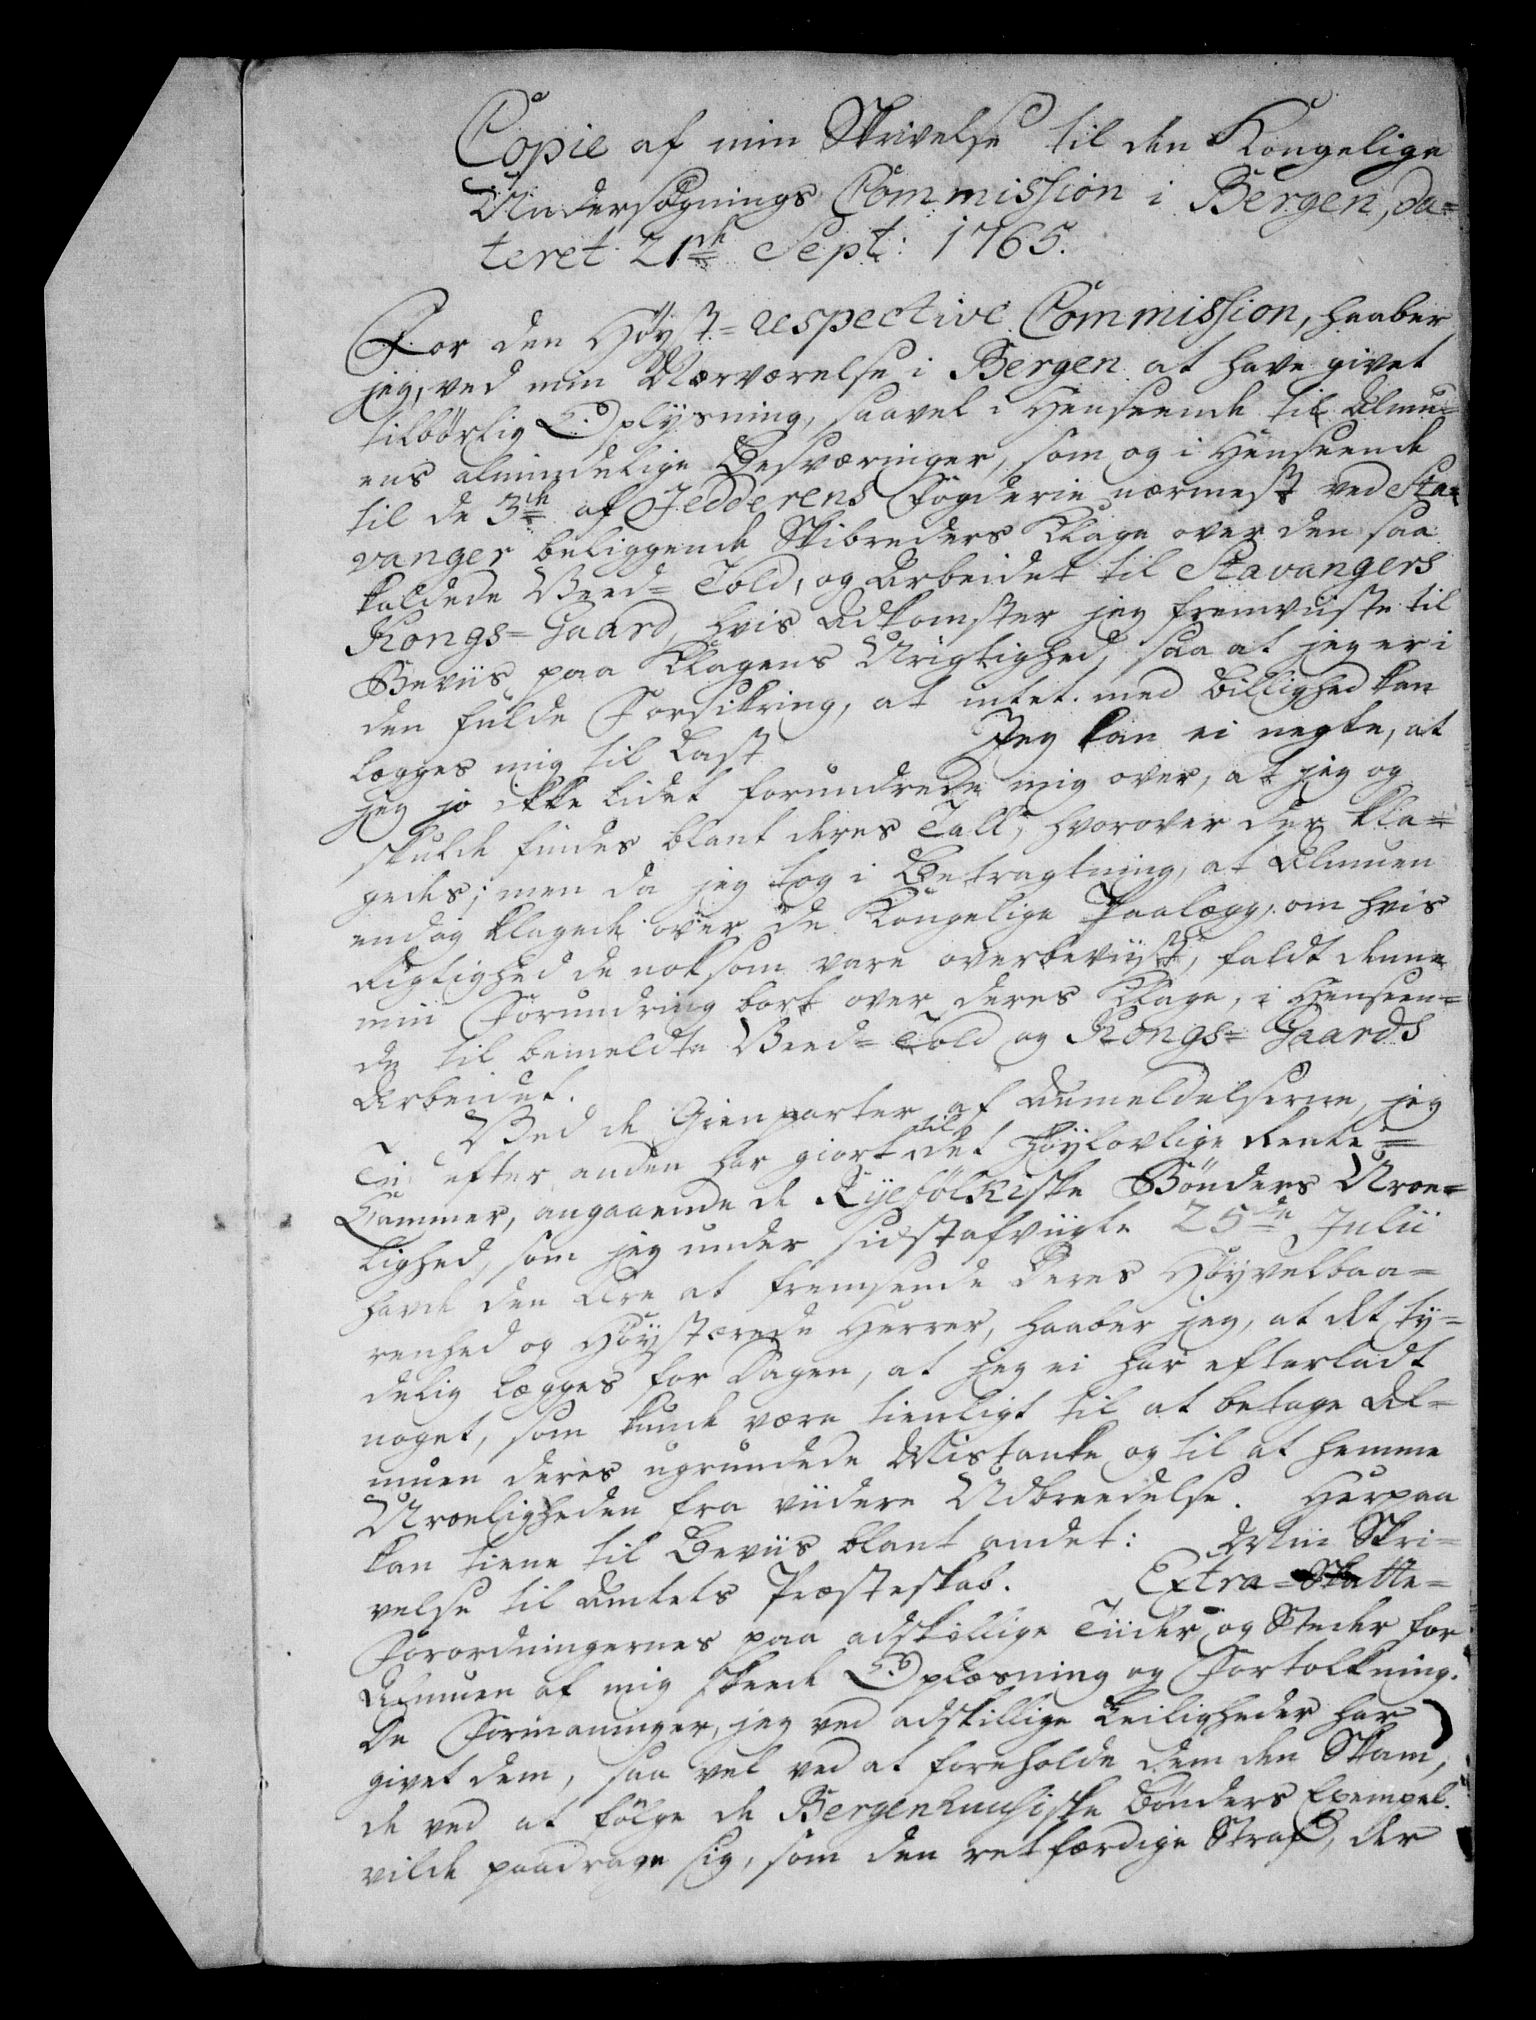 Copie af min Skrivelse til den Kongelige
Undersøgnings Commission i Bergen, da=
teret 21de Sept: 1765.
For den Høyst=respective Commission, haaber
jeg, ved min Nærværelse i Bergen at have givet
tilbørlig Oplysning, saavel i Henseende til Almu=
ens almindelige Besværinger, som og i Henseende
til de 3de af Jedderens Fogderie nærmest ved Sta=
vanger beliggende Skibreders Klage over den saa
kaldede Veed=Told, og Arbeidet til Stavangers
Kongs=Gaard, hvis Adkomster jeg fremviiste til
Beviis paa Klagens Urigtighed, saa at jeg er i
den fulde Forsikring, at intet med Billighed kan
lægges mig til Last. Jeg kan ei negte, at
jeg jo ikke lidet forundrede mig over, at jeg og
skulde findes blant deres Tall, hvorover der kla=
gedes; men da jeg tog i Betragtning, at Almuen
endog klagede over de Kongelige Paalæg, om hvis
Rigtighed de noksom vare overbeviist, faldt denne
min Forundring bort over deres Klage, i Henseen=
de til bemeldte Veed=Told og Kongs=Gaards
Arbeidet.
Ved de Gienparter af Anmeldelserne, jeg
Tid efter anden har giort til det Høylovlige Rente=
Kammer, angaaende de Ryefølkiske Bønders Uroe=
lighed, som jeg under sidstafvigte 25de Julii
havde den Ære at fremsende Deres Høyvelbaa=
renhed og Høystærede Herrer, haaber jeg, at det ty=
delig lægges for Dagen, at jeg ei har efterladt
noget, som kunde være tienligt til at betage Al=
muen deres ugrundede Mistanke og til at hemme
Uroeligheden fra viidere Udbreedelse. Herpaa
kan tiene til Beviis blant andet: Min Skri=
velse til Amtets Præsteskab. Extra=Skatte=
Forordningernes paa adskillige Tiider og Steder for
Almuen af mig skeede Oplæsning og Fortolkning.
De Formaninger, jeg ved adskillige Leiligheder har
givet dem, saa vel ved at foreholde dem den Skam,
de ved at følge de Bergenhuusiske Bønders Exempel
vilde paadrage sig, som den retfærdige Straf, der